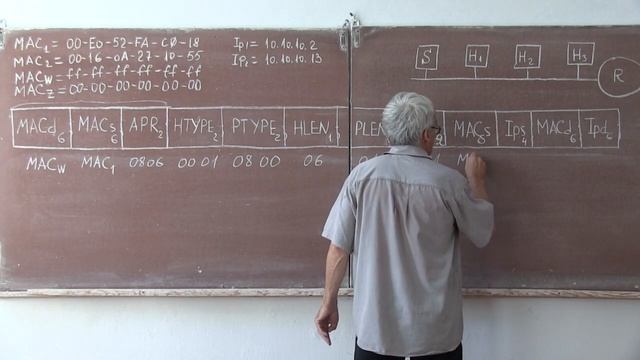 MAC1 = 00-E0-52-FA-C0-18
MAC2 = 00-16-0A-27-10-55
MACw = ff-ff-ff-ff-ff-ff
MACz = 00-00-00-00-00-00
Ip1 = 10.10.10.2
10.10.10.13
S H1 H2 H3 R
MACd6 MACs6 APR2 HTYPE2 PTYPE2 HLEN1 PLEN MACs6 Ips4 MACd6 Ipd
MACw MAC1 0806 0001 0800 06 M